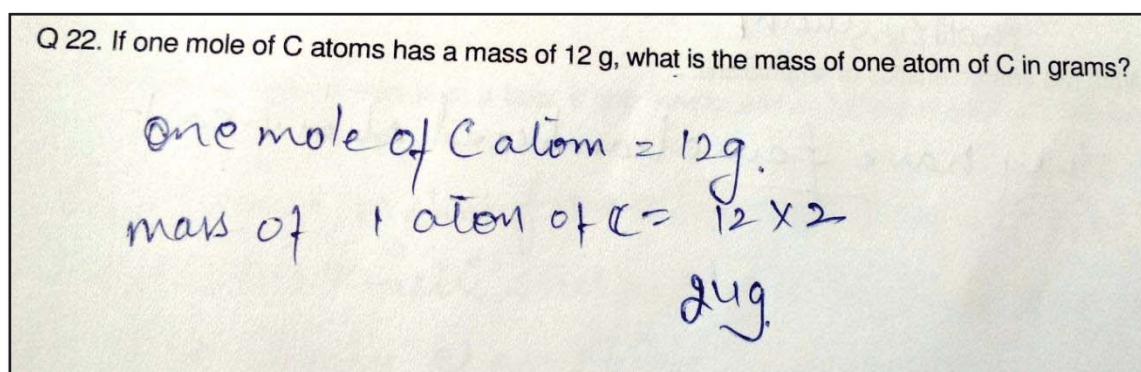 Q 22. If one mole of C atoms has a mass of 12 g, what is the mass of one atom of C in grams?
one mole of C atom = 12g.
mass of 1 aton of C = 12 x 2
24g.